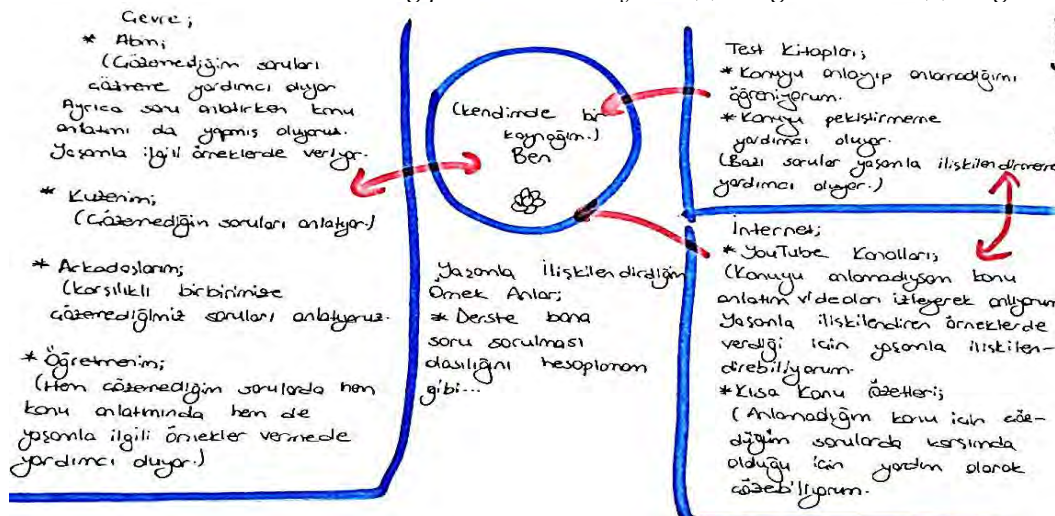 Çevre;
* Abim;
(Çözemediğim soruları
çözmeme yardımcı oluyor
Ayrıca soru anlatırken konu
anlatımı da yapmış oluyoruz.
Yaşamla ilgili örneklerde veriyor.
* Kuzenim;
(Çözemediğim soruları anlatıyor.)
* Arkadaşlarım;
(karşılıklı birbirimize
çözemediğimiz soruları anlatıyoruz.
* Öğretmenim;
(Hem çözemediğim sorularda hem
konu anlatımında hem de
yaşamla ilgili örnekler vermede
yardımcı oluyor.)
(kendimde bir
kaynağım.)
Ben
Yaşamla İlişkilendirdiğim
Örnek Anlar;
* Derste bana
soru sorulması
olasılığını hesaplamam
gibi...
Test Kitapları;
* Konuyu anlayıp anlamadığımı
öğreniyorum.
* Konuyu pekiştirmeme
yardımcı oluyor.
(Bazı sorular yaşamla ilişkilendirmeme
yardımcı oluyor.)
İnternet;
* YouTube Kanalları;
(Konuyu anlamadıysam konu
anlatım videoları izleyerek anlıyorum
Yaşamla ilişkilendiren örneklerde
verdiği için yaşamla ilişkilen-
direbiliyorum.
* Kısa Konu Özetleri;
(Anlamadığım konu için çöz-
düğüm sorularda karşımda
olduğu için yardım alarak
çözebiliyorum.